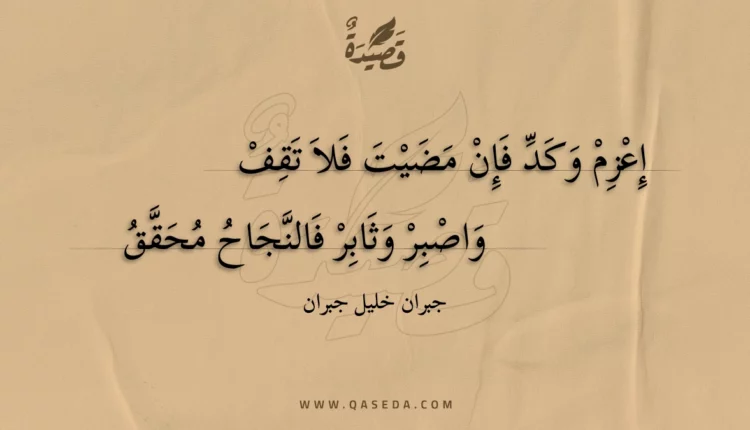 قَصِيدَةٌ
إِعْزِمْ وَكَدِّ فَإِنْ مَضَيْتَ فَلاَ تَقِفْ
وَاصْبِرْ وَثَابِرْ فَالنَّجَاحُ مُحَقَّقُ
جبران خليل جبران
WWW.QASEDA.COM